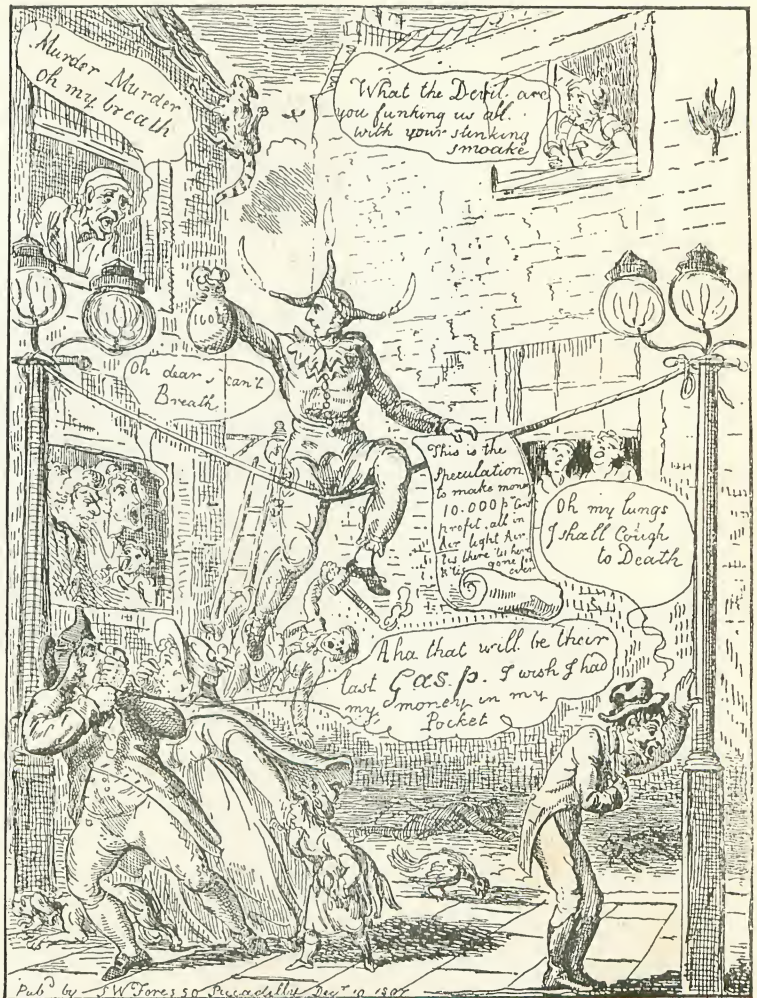 Murder Murder
Oh my breath
What the Devil are
you funking us all
with your stinking
smoake
Oh dear I can't
Breath
This is the
Speculation
to make money
10.000 pr Cent
profit all in
Air light Air
Tis there tis here
& tis gone for
ever
Oh my lungs
I shall Cough
to Death
Aha that will be their
last Gas.p. I wish I had
my money in my
Pocket
Pubd by SW Fores 50 Piccadilly Decr 10